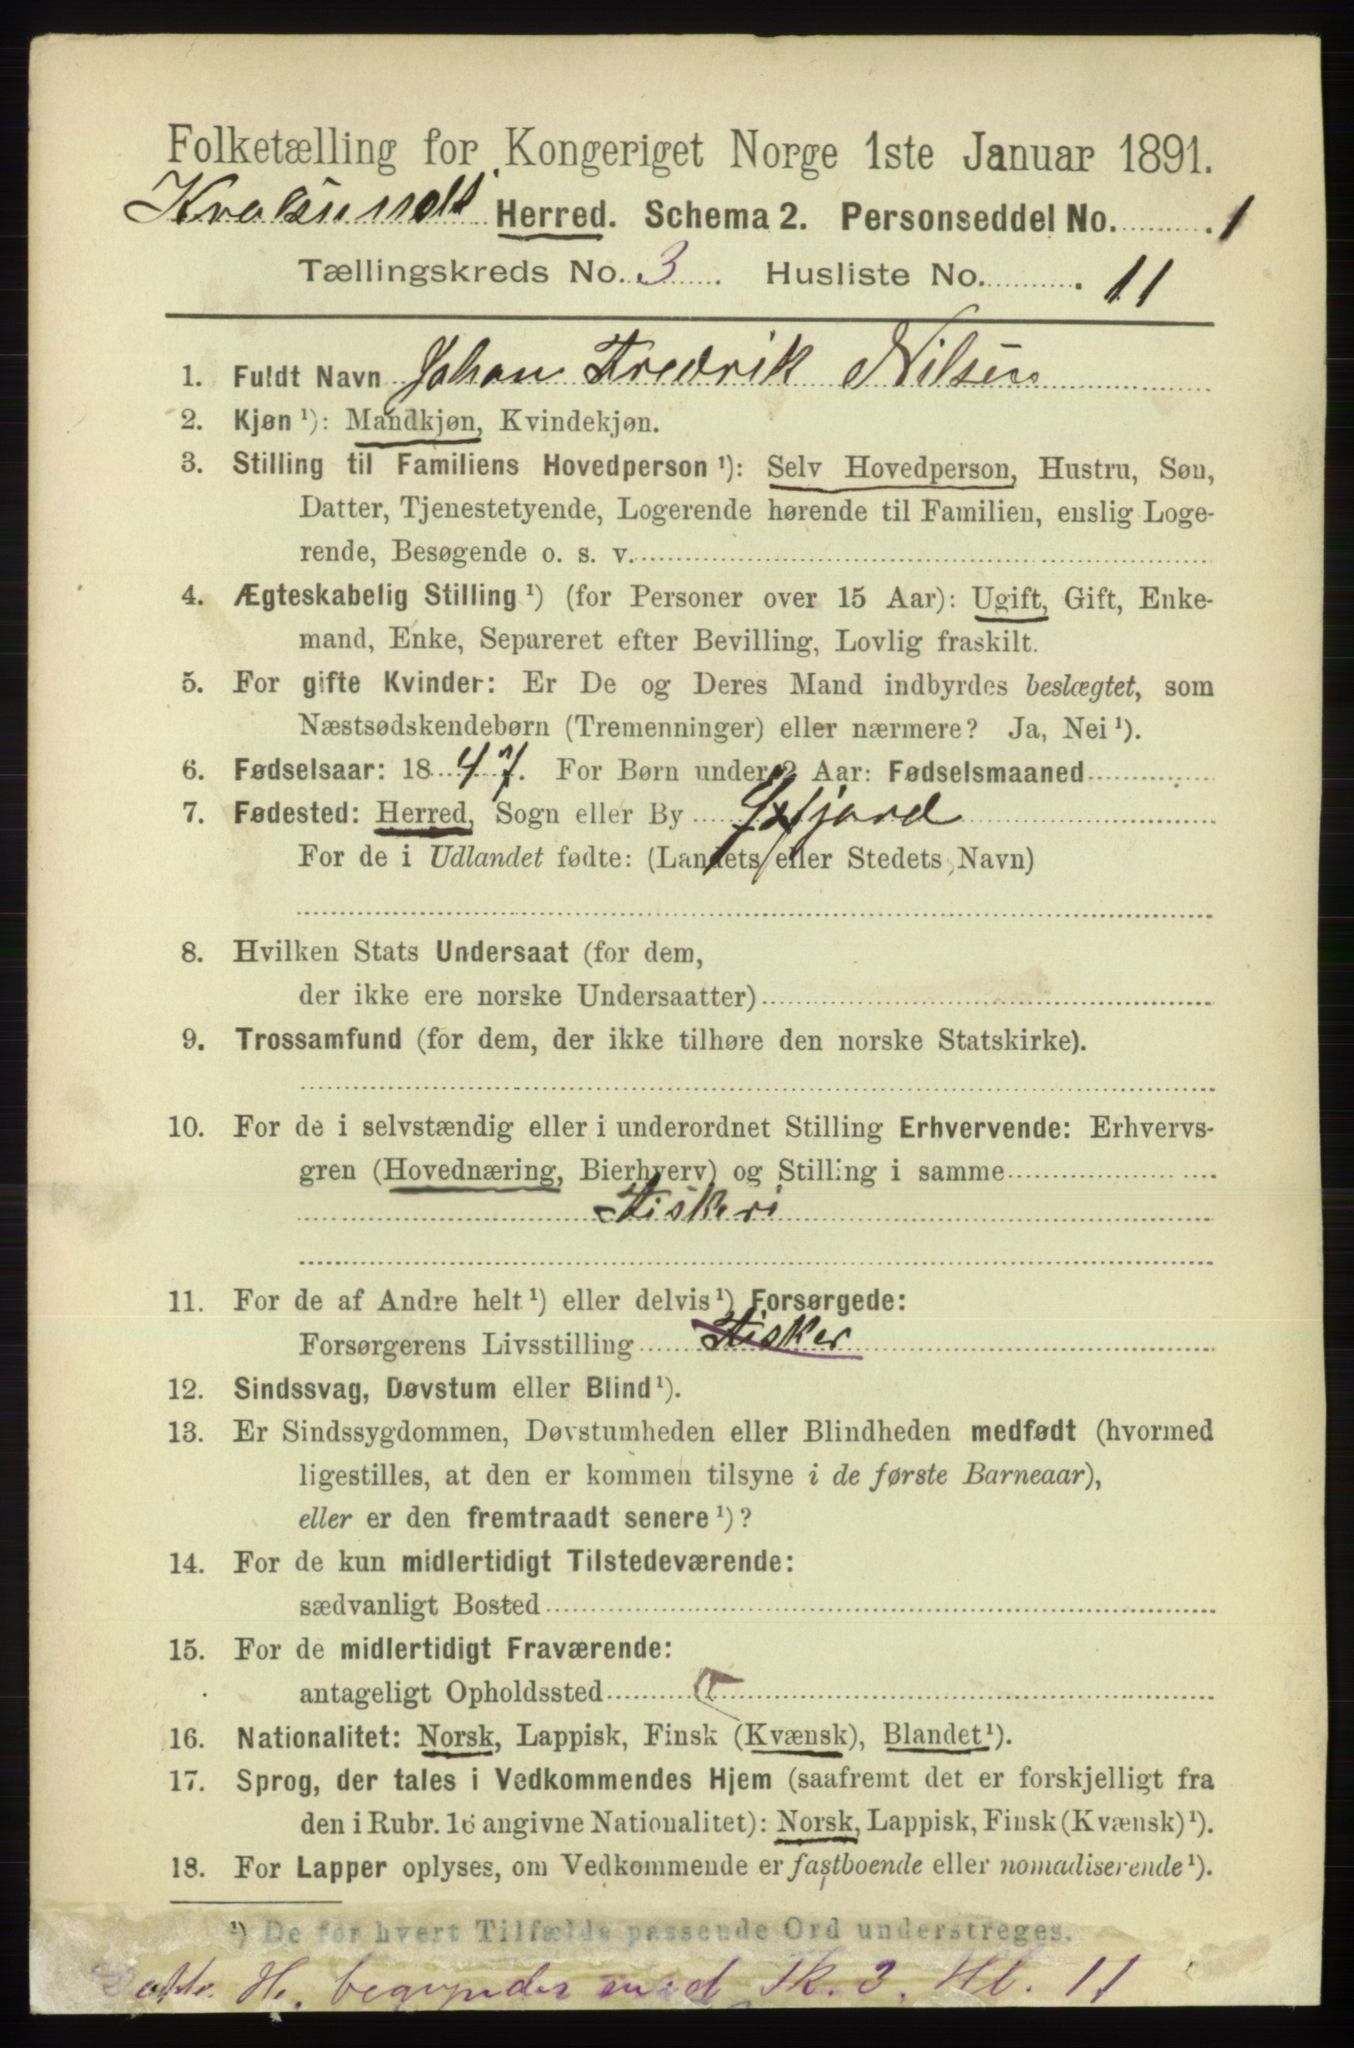 Folketælling for Kongeriget Norge 1ste Januar 1891.
Kvalsunds Herred. Schema 2. Personseddel No. 1
Tællingskreds No. 3. Husliste No. 11
1. Fuldt Navn Johan Fredrik Nilsen
2. Kjøn ¹): Mandkjøn, Kvindekjøn.
3. Stilling til Familiens Hovedperson ¹): Selv Hovedperson, Hustru, Søn,
Datter, Tjenestetyende, Logerende hørende til Familien, enslig Loge-
rende, Besøgende o. s. v.
4. Ægteskabelig Stilling ¹) (for Personer over 15 Aar): Ugift, Gift, Enke-
mand, Enke, Separeret efter Bevilling, Lovlig fraskilt.
5. For gifte Kvinder: Er De og Deres Mand indbyrdes beslægtet, som
Næstsødskendebørn (Tremenninger) eller nærmere? Ja, Nei ¹).
6. Fødselsaar: 1847. For Børn under 2 Aar: Fødselsmaaned
7. Fødested: Herred, Sogn eller By Øxfjord
For de i Udlandet fødte: (Landets eller Stedets Navn)
8. Hvilken Stats Undersaat (for dem,
der ikke ere norske Undersaatter)
9. Trossamfund (for dem, der ikke tilhøre den norske Statskirke).
10. For de i selvstændig eller i underordnet Stilling Erhvervende: Erhvervs-
gren (Hovednæring, Bierhverv) og Stilling i samme
Fiskeri
11. For de af Andre helt ¹) eller delvis ¹) Forsørgede:
Forsørgerens Livsstilling Fisker
12. Sindssvag, Døvstum eller Blind ¹).
13. Er Sindssygdommen, Døvstumheden eller Blindheden medfødt (hvormed
ligestilles, at den er kommen tilsyne i de første Barneaar),
eller er den fremtraadt senere ¹)?
14. For de kun midlertidigt Tilstedeværende:
sædvanligt Bosted
15. For de midlertidigt Fraværende:
antageligt Opholdssted
16. Nationalitet: Norsk, Lappisk, Finsk (Kvænsk), Blandet ¹).
17. Sprog, der tales i Vedkommendes Hjem (saafremt det er forskjelligt fra
den i Rubr. 16 angivne Nationalitet): Norsk, Lappisk, Finsk (Kvænsk) ¹).
18. For Lapper oplyses, om Vedkommende er fastboende eller nomadiserende ¹).
¹) De for hvert Tilfælde passende Ord understreges.
He. begynder med Tk. 3. Hl. 11